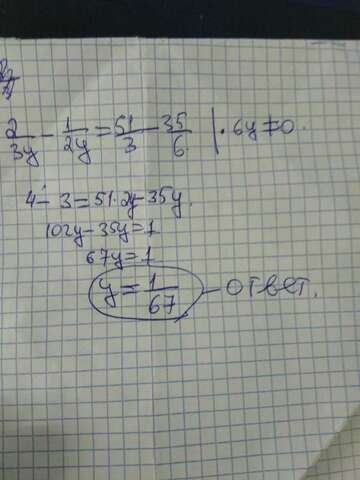 2/3y - 1/2y = 51/3 - 35/6 | · 6y ≠ 0.
4 - 3 = 51·2y - 35y.
102y - 35y = 1
67y = 1
y = 1/67 - ответ.